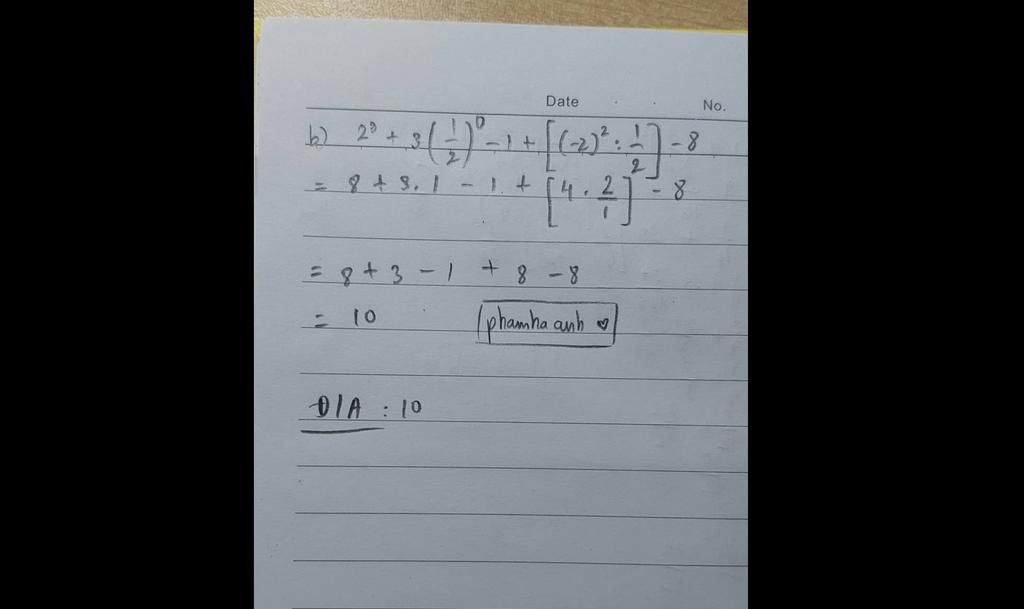 Date No.
b) 2³ + 3(1/2)⁰ - 1 + [(-2)² : 1/2] - 8
= 8 + 3 . 1 - 1 + [4 . 2/1] - 8
= 8 + 3 - 1 + 8 - 8
= 10 phamha anh ♡
Đ/A : 10